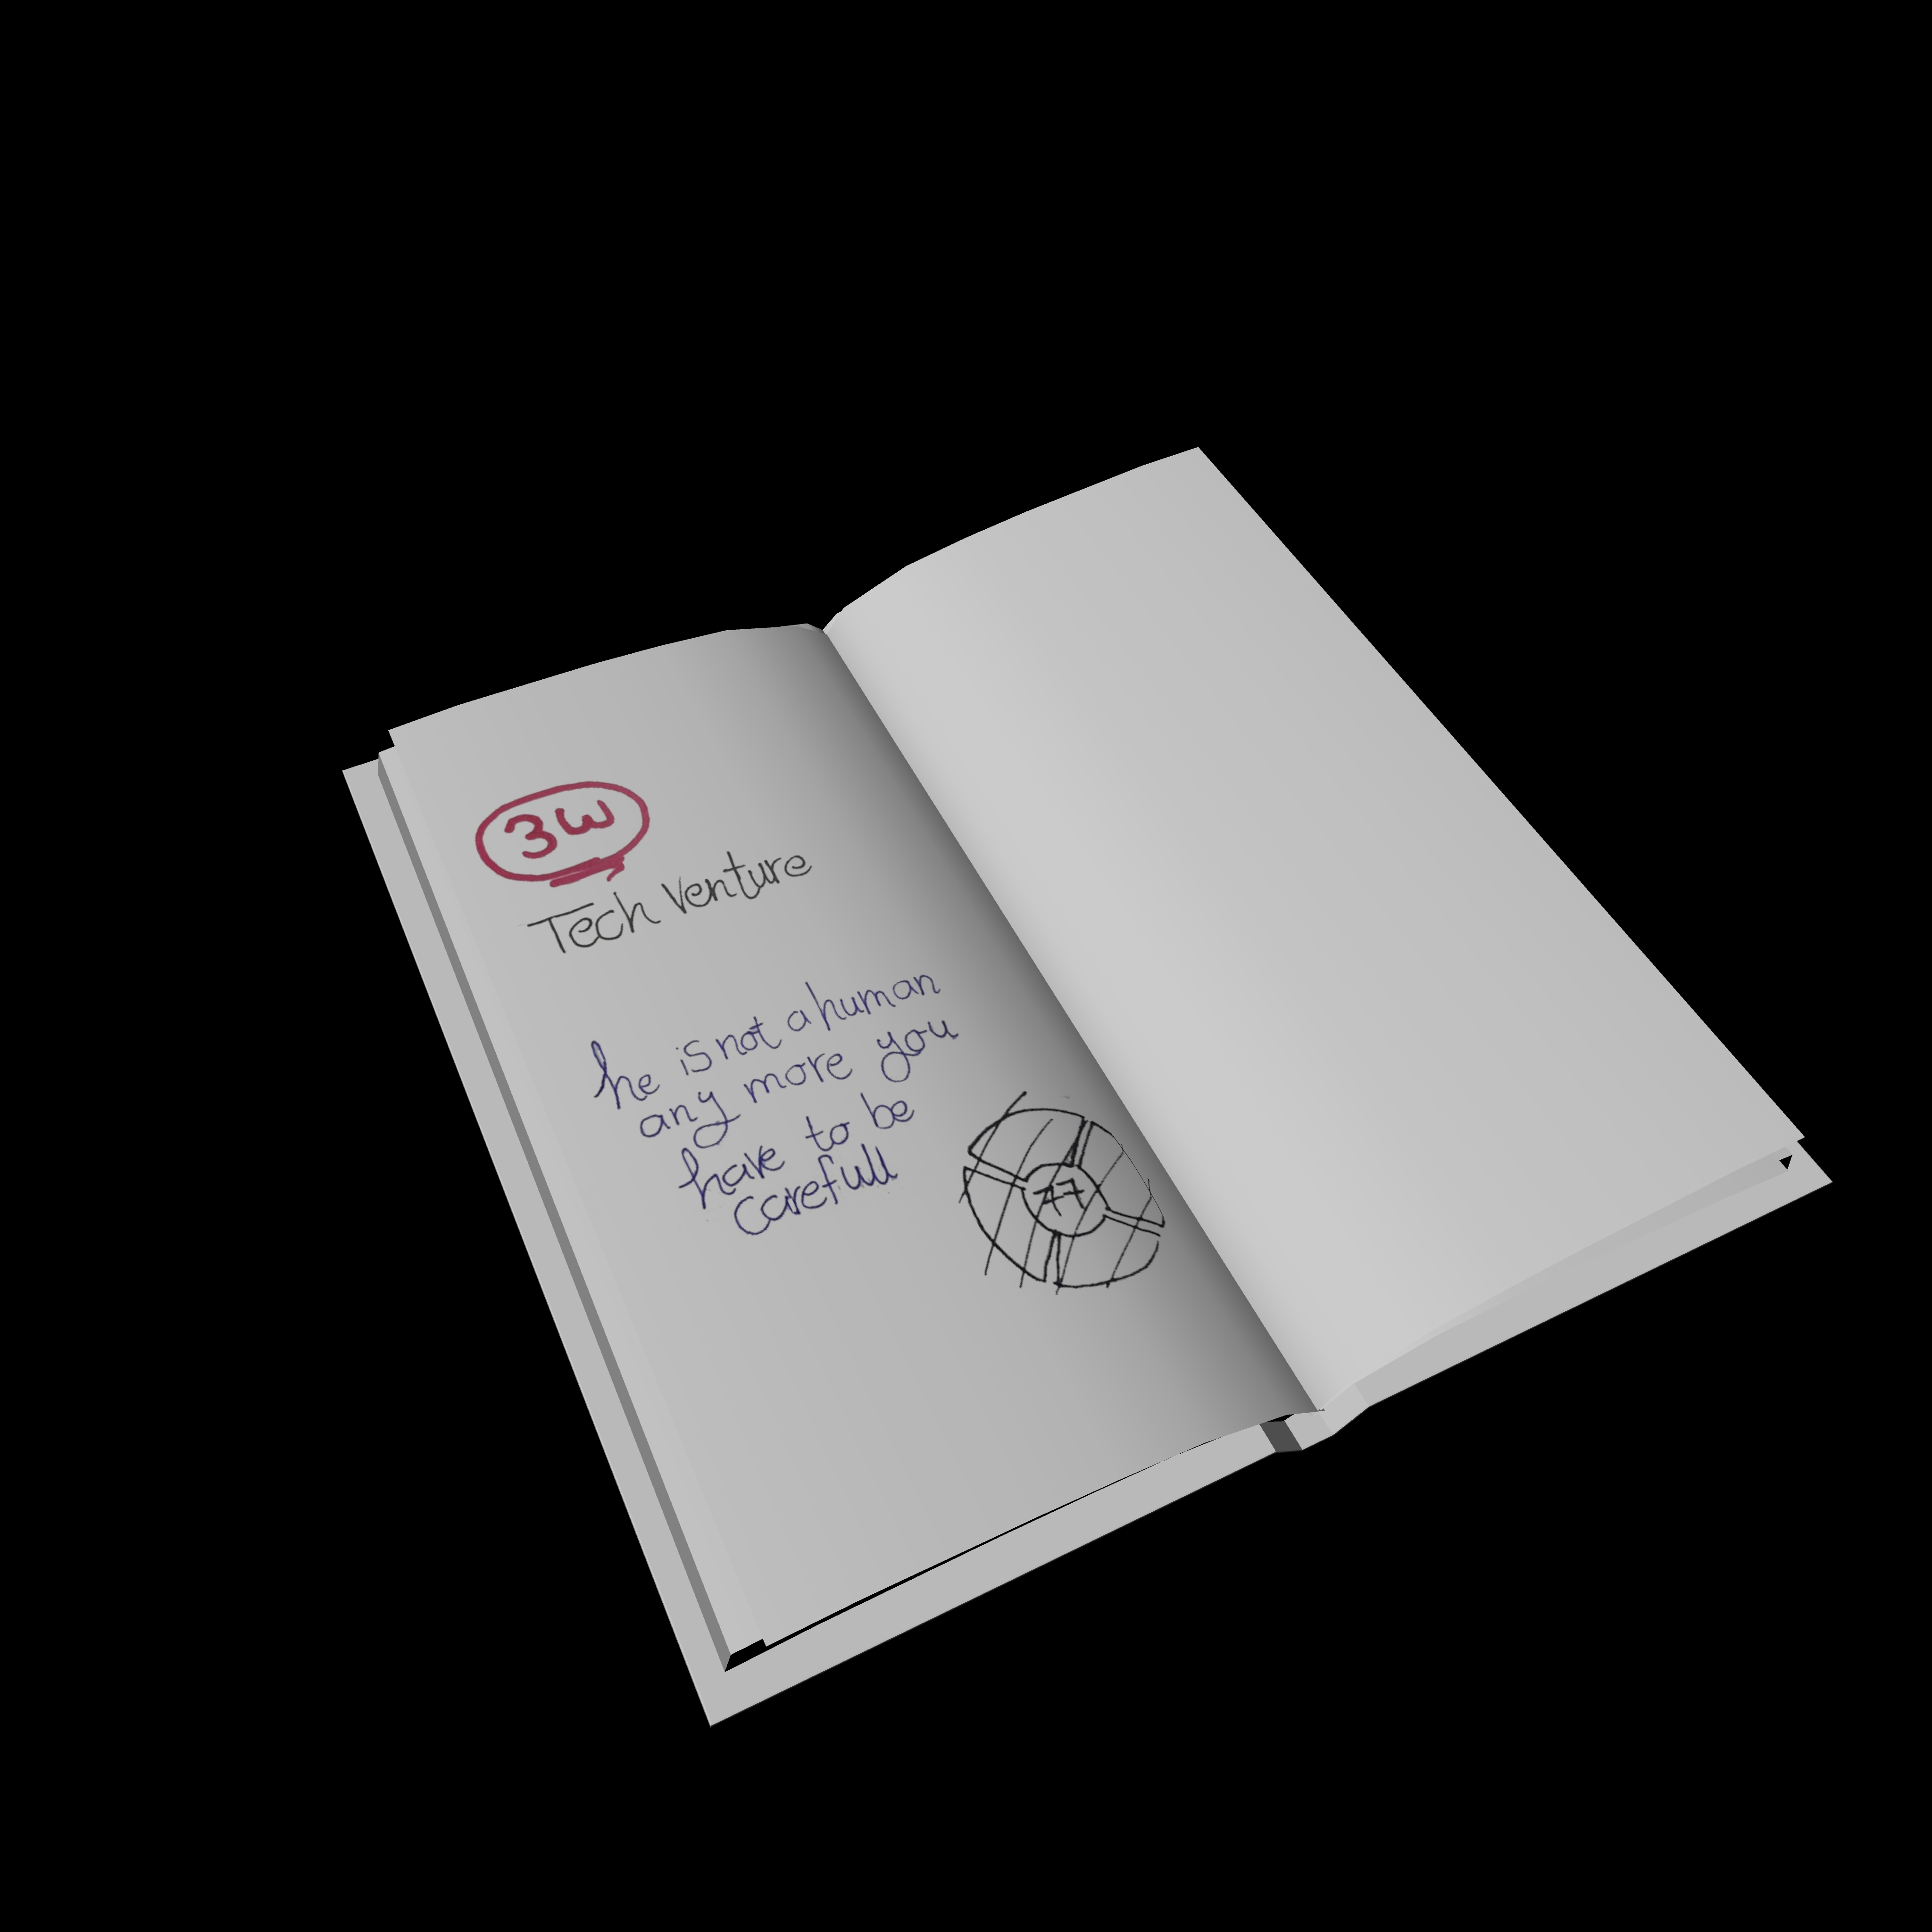 3W
Tech Venture
he is not a human
any more you
have to be
carefull
17